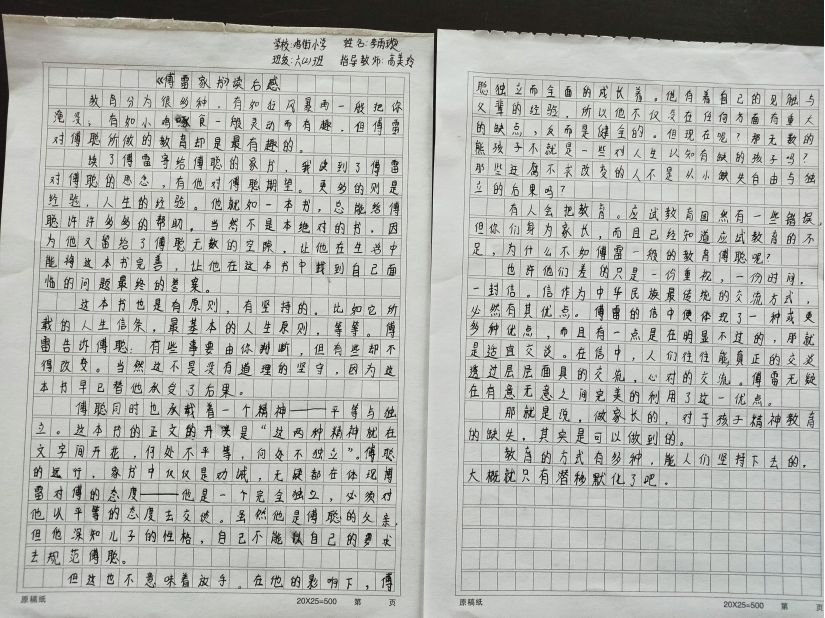 学校:鸡街小学 姓名:李雨璇
班级:六(2)班 指导教师:高美玲
《傅雷家书》读后感
教育分为很多种,有如狂风暴雨一般把你
淹没,有如小鸡啄食一般灵动而有趣,但傅雷
对傅聪所做的教育却是最有趣的。
读了傅雷寄给傅聪的家书,我读到了傅雷
对傅聪的思念,有他对傅聪期望。更多的则是
经验,人生的经验。他就如一本书,总能给傅
聪许许多多的帮助。当然不是本绝对的书,因
为他又留给了傅聪无数的空隙,让他在生活中
能将这本书完善,让他在这本书中找到自己面
临的问题最终的答案。
这本书也是有原则,有坚持的。比如它所
载的人生信条,最基本的人生原则,等等。傅
雷告诉傅聪:有些事要由你判断,但有些却不
得改变。当然这不是没有道理的坚守,因为这
本书早已替他承受了后果。
傅聪同时也承载着一个精神——平等与独
立。这本书的正文的开头是“这两种精神就在
文字间开花,何处不平等,何处不独立”。傅聪
的远行,家书中仅仅是劝诫,无疑都在体现傅
雷对傅的态度——他是一个完全独立,必须对
他以平等的态度去交谈。虽然他是傅聪的父亲,
但他深知儿子的性格,自己不能以自己的要求
去规范傅聪。
但这也不意味着放手。在他的影响下,傅
原稿纸 20X25=500 第 页
聪独立而全面的成长着。他有着自己的见触与
父辈的经验,所以他不仅没在任何方面有重大
的缺点,反而是健全的。但现在呢?那无数的
熊孩子不就是一些对人生认知有缺的孩子吗?
那些迂腐不求改变的人不是从小缺失自由与独
立的后果吗?
有人会把教育。应试教育固然有一些错误,
但你们身为家长,而且已经知道应试教育的不
足,为什么不如傅雷一般的教育傅聪呢?
也许他们差的只是一份重视,一份时间,
一封信。信作为中华民族最传统的交流方式,
必然有其优点。傅雷的信中便体现了一种或更
多种优点,而且有一点是在明显不过的,那就
是适宜交谈。在信中,人们往往能真正的交谈
透过层层面具的交流,心对的交流。傅雷无疑
在有意无意之间完美的利用了这一优点。
那就是说,做家长的,对于孩子精神教育
的缺失,其实是可以做到的。
教育的方式有多种,能人们坚持下去的,
大概就只有潜移默化了吧。
原稿纸 20X25=500 第 页